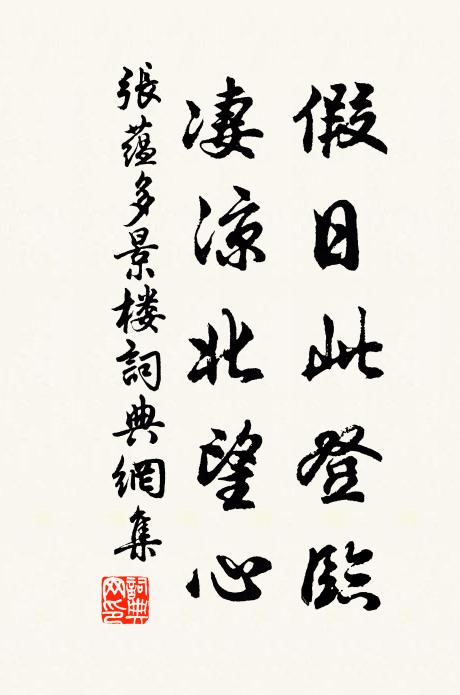 假日此登臨
凄涼北望心
張蘊多景楼詞典網集
詞典网印